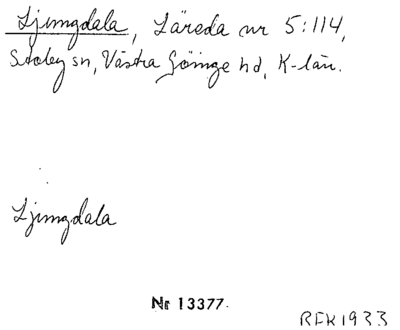 Ljungdala, Läreda nr 5:114,
Stoby sn, Västra Göinge hd, K-län.
Ljungdala
Nr 13377.
BFK 1933